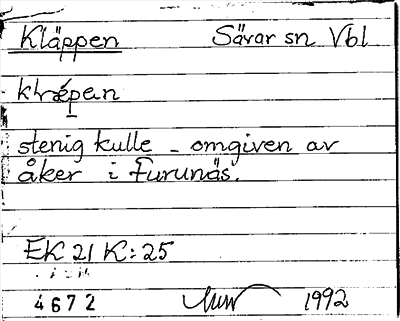 Kläppen Sävar sn Vbl
stenig kulle - omgiven av
åker i Furunäs.
EK 21 K: 25
4672 1992